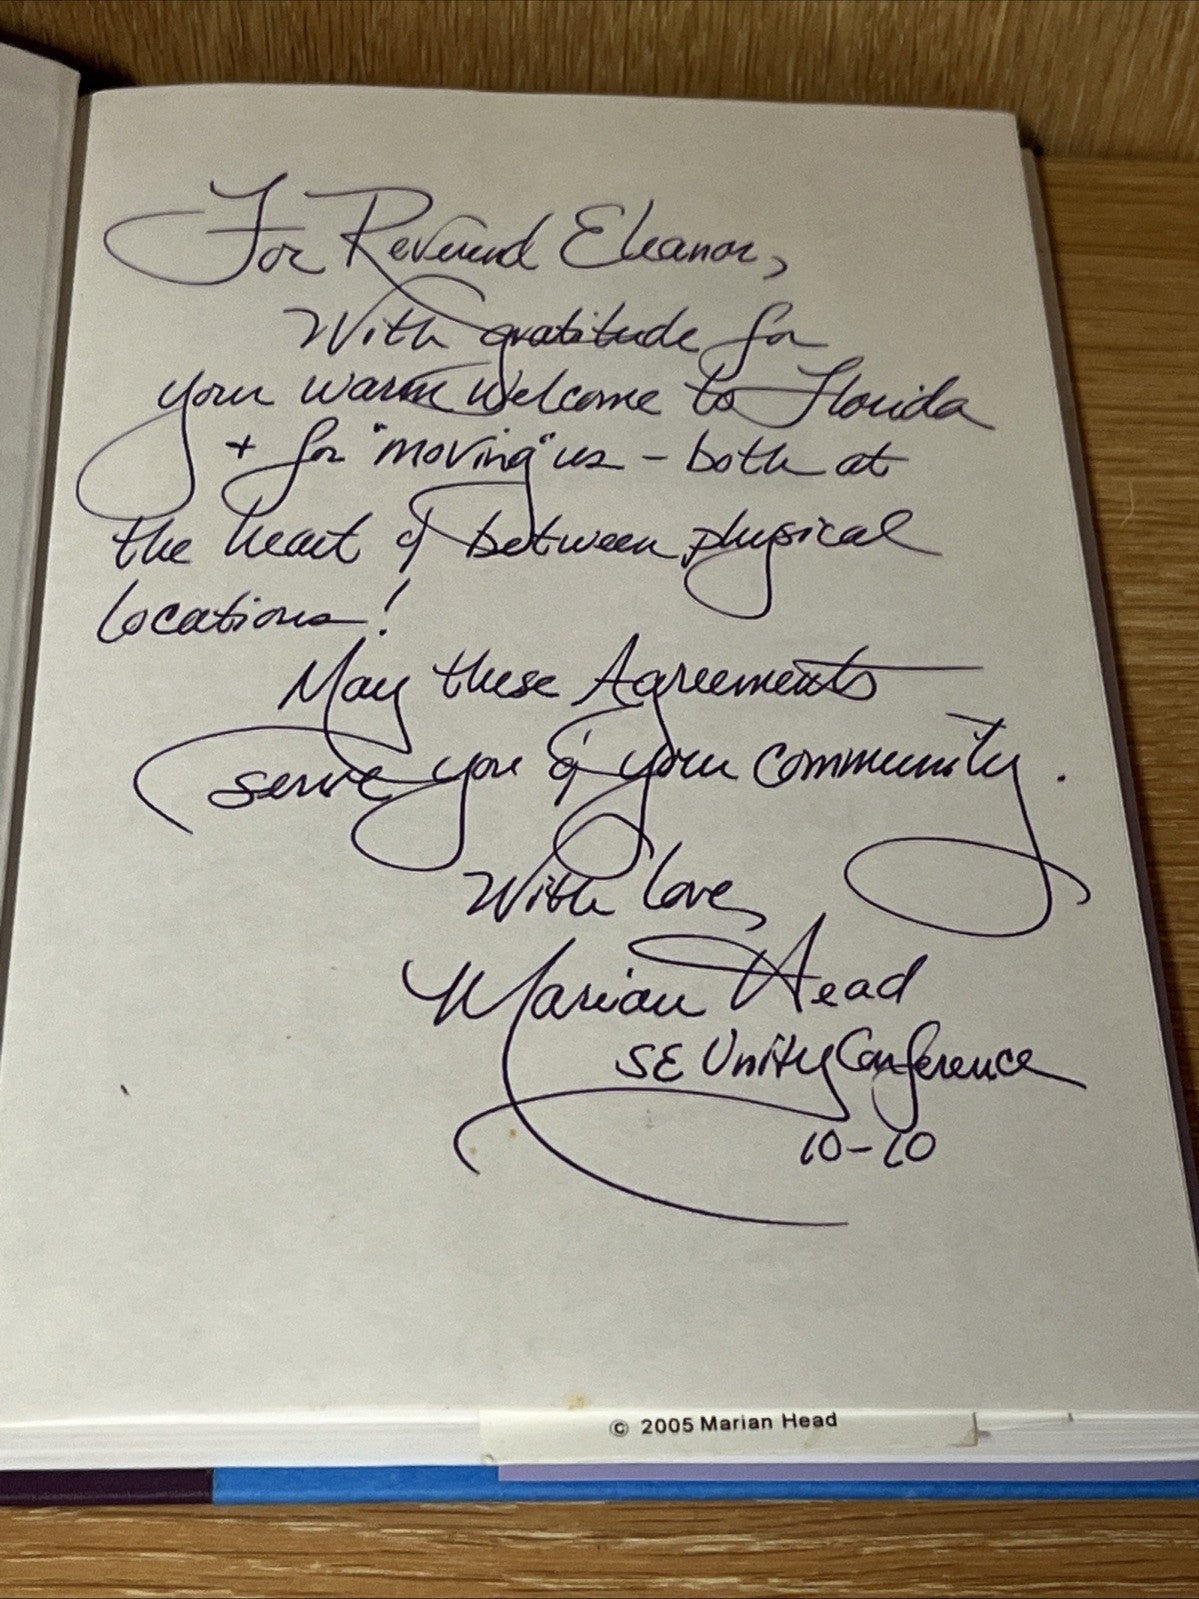 For Reverend Eleanor,
With gratitude for
your warm welcome to Florida
+ for "moving" us - both at
the heart & between physical
locations!
May these Agreements
serve you & your community.
With love,
Marian Head
SE Unity Conference
10-10
© 2005 Marian Head